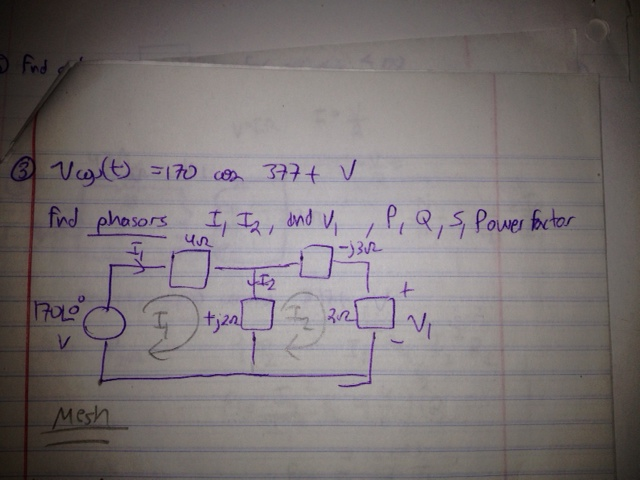 ① Find
③ Vcos(t) = 170 cos 377t V
find phasors I₁ I₂, and V₁, P, Q, S, Power factor
I₁ 4Ω -j3Ω
↓I₂
170∠0° V
I₁ +j2Ω I₂ 2Ω + V₁ -
Mesh